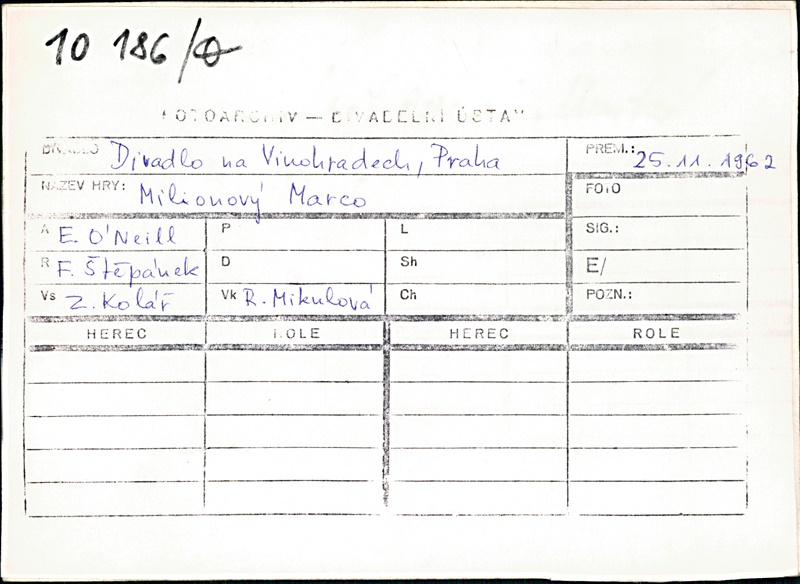 10 186/
FOTOARCHIV — DIVADELNÍ ÚSTAV
DIVADLO Divadlo na Vinohradech, Praha PREM.: 25.11.1962
NÁZEV HRY: Milionový Marco FOTO
A E. O'Neill P L SIG.:
R F. Štěpánek D Sh E/
Vs Z. Kolář Vk R. Mikulová Ch POZN.:
HEREC ROLE HEREC ROLE